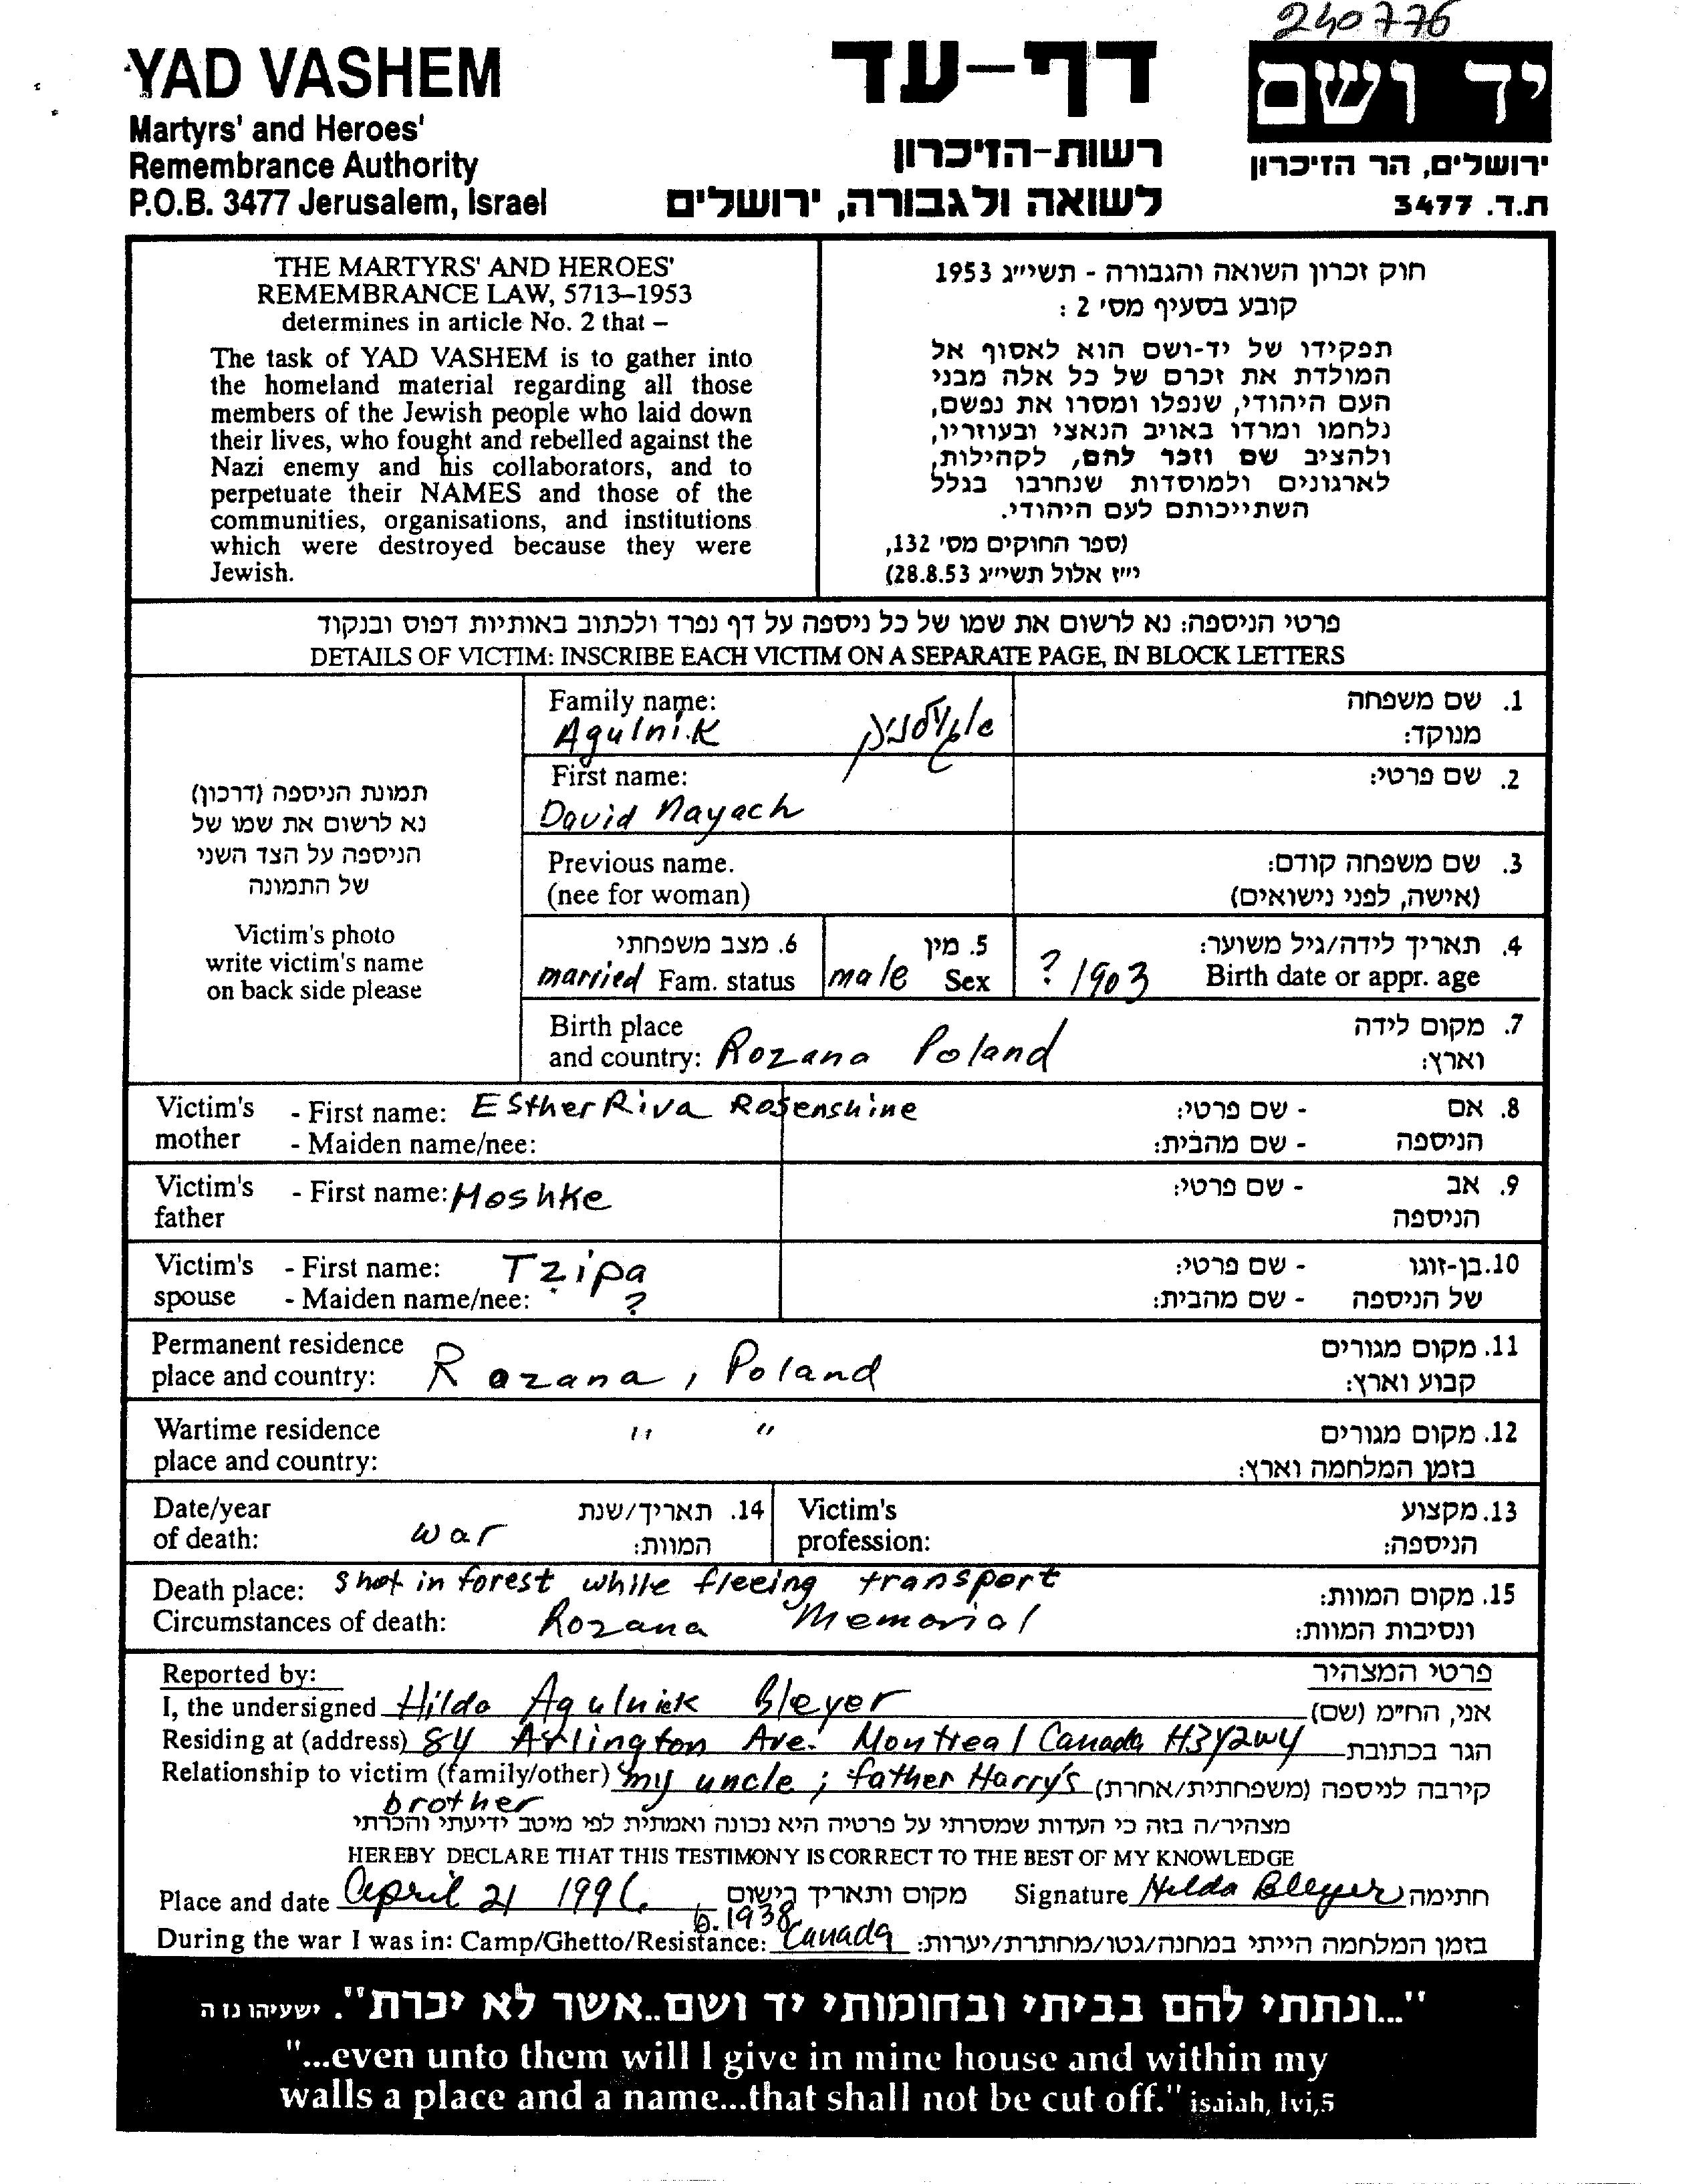 240776
YAD VASHEM
Martyrs' and Heroes'
Remembrance Authority
P.O.B. 3477 Jerusalem, Israel
דף-עד
רשות-הזיכרון
לשואה ולגבורה, ירושלים
יד ושם
ירושלים, הר הזיכרון
ת.ד. 3477
THE MARTYRS' AND HEROES'
REMEMBRANCE LAW, 5713–1953
determines in article No. 2 that –
The task of YAD VASHEM is to gather into
the homeland material regarding all those
members of the Jewish people who laid down
their lives, who fought and rebelled against the
Nazi enemy and his collaborators, and to
perpetuate their NAMES and those of the
communities, organisations, and institutions
which were destroyed because they were
Jewish.
חוק זכרון השואה והגבורה - תשי״ג 1953
קובע בסעיף מס' 2 :
תפקידו של יד-ושם הוא לאסוף אל
המולדת את זכרם של כל אלה מבני
העם היהודי, שנפלו ומסרו את נפשם,
נלחמו ומרדו באויב הנאצי ובעוזריו,
ולהציב שם וזכר להם, לקהילות,
לארגונים ולמוסדות שנחרבו בגלל
השתייכותם לעם היהודי.
(ספר החוקים מס' 132,
י״ז אלול תשי״ג 28.8.53)
פרטי הניספה: נא לרשום את שמו של כל ניספה על דף נפרד ולכתוב באותיות דפוס ובנקוד
DETAILS OF VICTIM: INSCRIBE EACH VICTIM ON A SEPARATE PAGE, IN BLOCK LETTERS
תמונת הניספה (דרכון)
נא לרשום את שמו של
הניספה על הצד השני
של התמונה
Victim's photo
write victim's name
on back side please
Family name: 1. שם משפחה
Agulnik אגולניק מנוקד:
First name: 2. שם פרטי:
David Nayach
Previous name. 3. שם משפחה קודם:
(nee for woman) (אישה, לפני נישואים)
6. מצב משפחתי 5. מין 4. תאריך לידה/גיל משוער:
married Fam. status male Sex ? 1903 Birth date or appr. age
Birth place 7. מקום לידה
and country: Rozana Poland וארץ:
Victim's - First name: Esther Riva Rosenshine - שם פרטי: 8. אם
mother - Maiden name/nee: - שם מהבית: הניספה
Victim's - First name: Moshke - שם פרטי: 9. אב
father הניספה
Victim's - First name: Tzipa - שם פרטי: 10. בן-זוגו
spouse - Maiden name/nee: ? - שם מהבית: של הניספה
Permanent residence 11. מקום מגורים
place and country: Rozana, Poland קבוע וארץ:
Wartime residence " " 12. מקום מגורים
place and country: בזמן המלחמה וארץ:
Date/year 14. תאריך/שנת Victim's 13. מקצוע
of death: war המוות: profession: הניספה:
Death place: shot in forest while fleeing transport 15. מקום המוות:
Circumstances of death: Rozana Memorial ונסיבות המוות:
Reported by: פרטי המצהיר
I, the undersigned Hilda Agulnick Bleyer אני, הח״מ (שם)
Residing at (address) 84 Arlington Ave. Montreal Canada H3Y2W4 הגר בכתובת
Relationship to victim (family/other) my uncle ; father Harry's קירבה לניספה (משפחתית/אחרת)
brother
מצהיר/ה בזה כי העדות שמסרתי על פרטיה היא נכונה ואמתית לפי מיטב ידיעתי והכרתי
HEREBY DECLARE THAT THIS TESTIMONY IS CORRECT TO THE BEST OF MY KNOWLEDGE
Place and date April 21 1996 מקום ותאריך רישום Signature Hilda Bleyer חתימה
b. 1938
During the war I was in: Camp/Ghetto/Resistance: Canada בזמן המלחמה הייתי במחנה/גטו/מחתרת/יערות:
"...ונתתי להם בביתי ובחומותי יד ושם..אשר לא יכרת". ישעיהו נו ה
"...even unto them will I give in mine house and within my
walls a place and a name...that shall not be cut off." isaiah, lvi,5